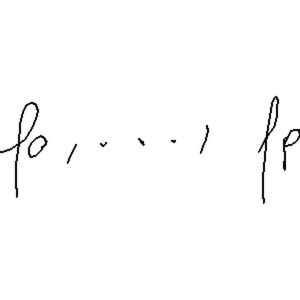 f0, ..., fp